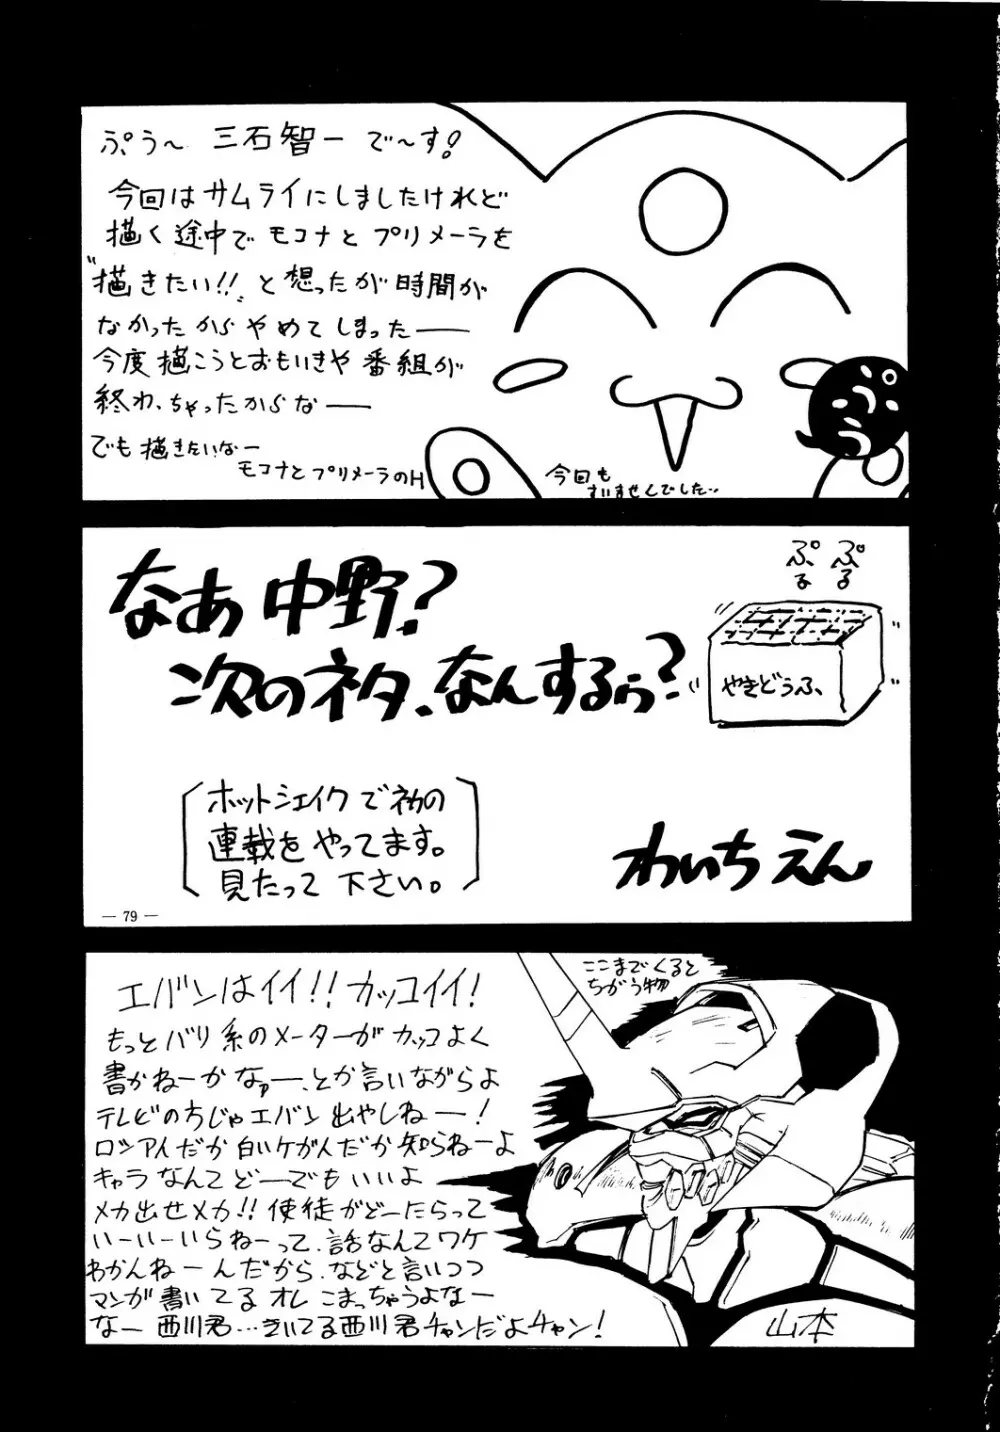 ぷぅ〜 三石智一 で〜す!
今回はサムライにしましたけれど
描く途中でモコナとプリメーラを
"描きたい!!"と想ったが時間が
なかったからやめてしまった──
今度描こうとおもいきや番組が
終わっちゃったからな──
でも描きたいなー
モコナとプリメーラのH
今回も
すいませんでした..
なあ中野?
次のネタ、なんするら?
ぷるぷる
やきどうふ、
ホットシェイクで初の
連載をやってます。
見たって下さい。
わいちえん
— 79 —
エバンはイイ!!カッコイイ!
もっとバリ系のメーターがカッコよく
書かねーかなァー、とか言いながらよ
テレビのちじゃエバン出やしねー!
ロシアんだか白いケがんだか知らねーよ
キャラなんてどーでもいいよ
メカ出せメカ!!使徒がどーたらって
いーいーいらねーって、話なんてワケ
わかんねーんだから、などと言いつつ
マンガ書いてるオレこまっちゃうよなー
なー西川君…きいてる西川君チャンだよチャン!
ここまでくると
ちがう物
山本